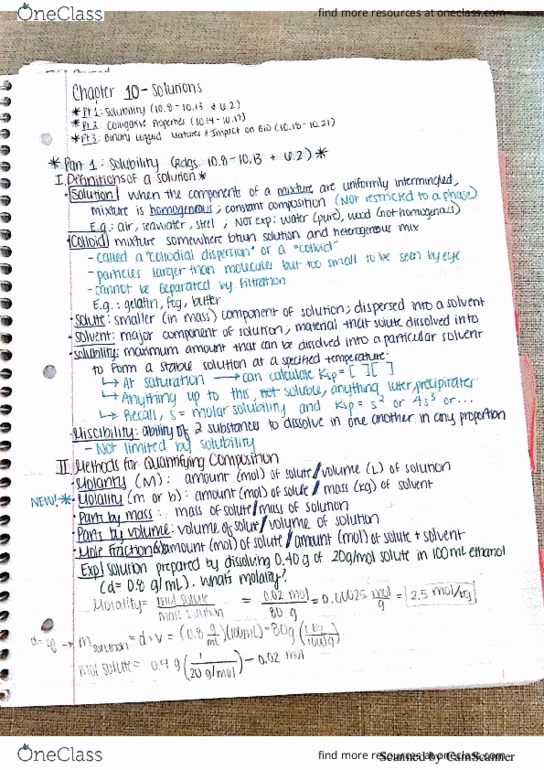 OneClass
find more resources at oneclass.com
Chapter 10 - Solutions
* Pt 1: Solubility (10.8-10.13 & 6.2)
* Pt 2: Colligative Properties (10.14-10.17)
* Pt 3: Binary Liquid Mixtures + Impact on (10.18-10.21)
* Part 1: Solubility (Rdgs. 10.8-10.13 + 6.2) *
I. Definitions of a solution *
· Solution: when the components of a mixture are uniformly intermingled,
mixture is homogenous; constant composition (Not restricted to a phase)
E.g.: air, seawater, steel; NOT exp: water (pure), wood (not homogenous)
· Colloid: mixture somewhere btwn solution and heterogenous mix
- called a "collodial dispersion" or a "colloid"
- particles larger than molecules but too small to be seen by eye
- cannot be separated by filtration
E.g.: gelatin, fog, butter
· Solute: smaller (in mass) component of solution; dispersed into a solvent
· Solvent: major component of solution, material that solute dissolved into
· Solubility: maximum amount that can be dissolved into a particular solvent
to form a stable solution at a specified temperature:
↳ At saturation → can calculate Ksp = [ ][ ]
↳ Anything up to this, soluble, anything later, precipitates
↳ Recall, s = molar solubility and Ksp = s² or 4s³ or...
· Miscibility: ability of 2 substances to dissolve in one another in any proportion
- Not limited by solubility
II. Methods for Quantifying Composition
· Molarity (M): amount (mol) of solute / volume (L) of solution
NEW! * · Molality (m or b): amount (mol) of solute / mass (kg) of solvent
· Parts by mass: mass of solute/mass of solution
· Parts by volume: volume of solute / volume of solution
· Mole Fraction (X): amount (mol) of solute / amount (mol) of solute + solvent
Exp| solution prepared by dissolving 0.40 g of 20g/mol solute in 100 mL ethanol
(d = 0.8 g/mL). Whats molality?
Molality = mol solute / mass solution = 0.02 mol / 80 g = 0.00025 mol/g = 2.5 mol/kg
m solution = d × V = (0.8 g/mL)(100mL) = 80g (1 kg / 1000g)
mol solute = 0.4 g (1 / 20 g/mol) = 0.02 mol
OneClass
find more resources at oneclass.com
Scanned by CamScanner